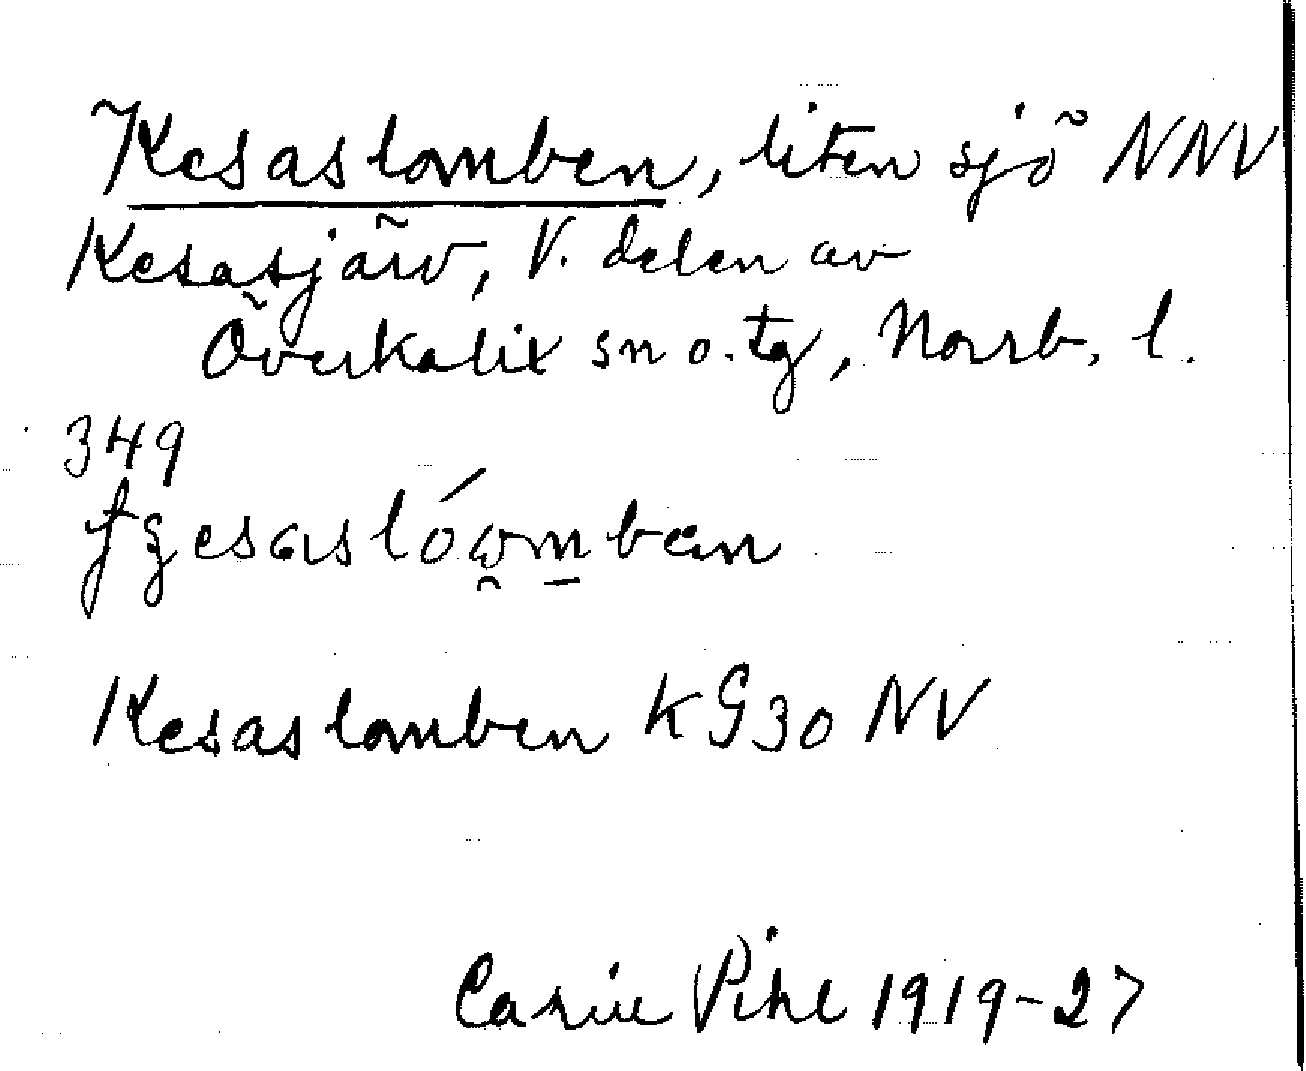 Kesaslomben, liten sjö NNV
Kesasjärv, V. delen av
Överkalix sn o. tg, Norrb. l.
349
Kesaslomben KG30 NV
Carin Pihl 1919-27